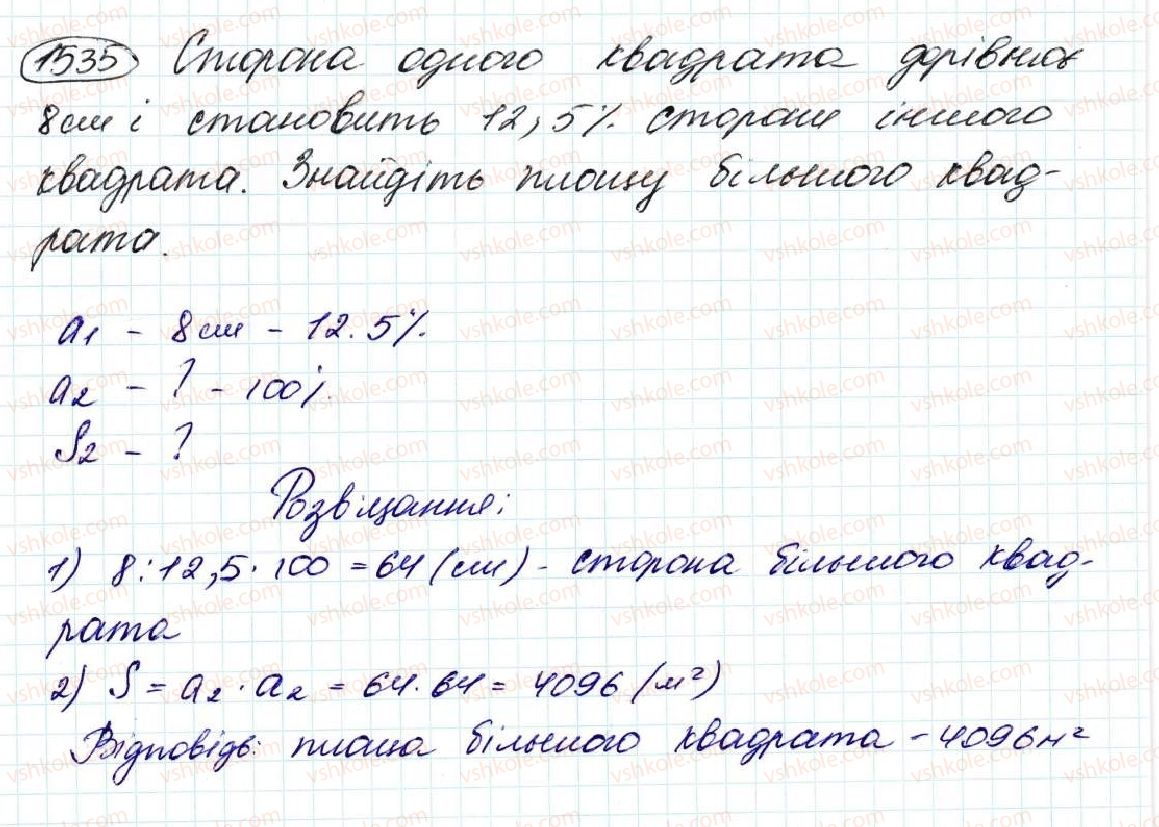 1535 Сторона одного квадрата дорівнює
8см і становить 12,5% сторони іншого
квадрата. Знайдіть площу більшого квад-
рата.
a1 - 8см - 12.5%.
a2 - ? - 100%
S2 - ?
Розвіщання:
1) 8:12,5·100 = 64 (см) - сторона більшого квад-
рата
2) S = a2 · a2 = 64·64 = 4096 (м²)
Відповідь: площа більшого квадрата - 4096м²
vshkole.com